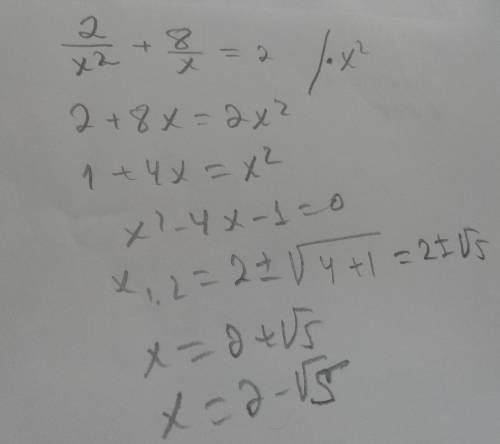 2/x² + 8/x = 2 /·x²
2 + 8x = 2x²
1 + 4x = x²
x² - 4x - 1 = 0
x₁,₂ = 2 ± √(4+1) = 2 ± √5
x = 2 + √5
x = 2 - √5